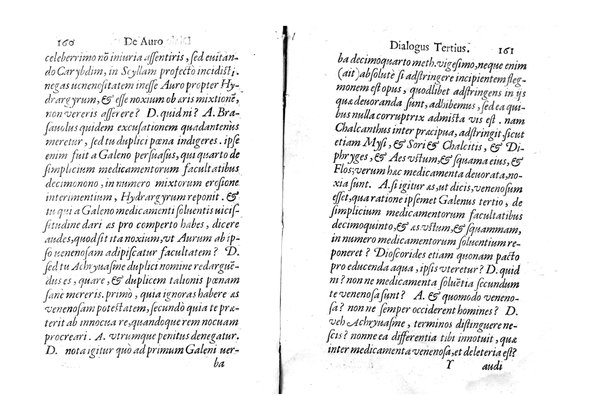 160 De Auro
celeberrimo nō iniuria assentiris, sed euitan-
do Carybdim, in Scyllam profectò incidisti.
negas uenenositatem inesse Auro propter Hy-
drargyrum, & esse noxium ob æris mixtionē,
non vereris asserere? D. quid ni? A. Bra-
sauolus quidem excusationem quadantenus
meretur, sed tu duplici pœna indigeres. ipse
enim fuit a Galeno persuasus, qui quanto de
simplicium medicamentorum facultatibus
decimonono, in numero mixtorum erosione
interimentium, Hydrargyrum reponit. &
tu qui a Galeno medicamenti soluentis uicis-
situdine dari æs pro comperto habes, dicere
audes, quod sit ita noxium, vt Aurum ab ip-
so uenenosam adipiscatur facultatem? D.
sed tu Achryuasme duplici nomine redarguē-
dus es, quare, & duplicem talionis pœnam
sanè mereris. primò, quia ignoras habere æs
venenosam potestatem, secundò quia te præ-
terit ab innocua re, quandoque rem nocuam
procreari. A. vtrumque penitus denegatur.
D. nota igitur quò ad primum Galeni uer-
ba
Dialogus Tertius. 161
ba decimoquarto meth. vigesimo, neque enim
(ait) absolutè si adstringere incipientem fleg-
monem est opus, quodlibet adstringens in ijs
quæ deuoranda sunt, adhibemus, sed ea qui-
bus nulla corruptrix admista vis est. nam
Chalcanthus inter præcipua, adstringit, sicut
etiam Mysi, & Sori & Chalcitis, & Di-
phryges, & Aes vstum, & squama eius, &
Flos, verum hæc medicamenta deuorata, no-
xia sunt. A. si igitur æs, ut dicis, venenosum
esset, qua ratione ipsemet Galenus tertio, de
simplicium medicamentorum facultatibus
decimoquinto, & æs vstum, & squammam,
in numero medicamentorum soluentium re-
poneret? Dioscorides etiam quonam pacto
pro educenda aqua, ipsis vteretur? D. quid
ni? nonne medicamenta soluētia secundum
te venenosa sunt? A. & quomodo veneno-
sa? nonne semper occiderent homines? D.
veh Achryuasme, terminos distinguere ne-
scis? nonne ea differentia tibi innotuit, quæ
inter medicamenta venenosa, et deleteria est?
Y audi